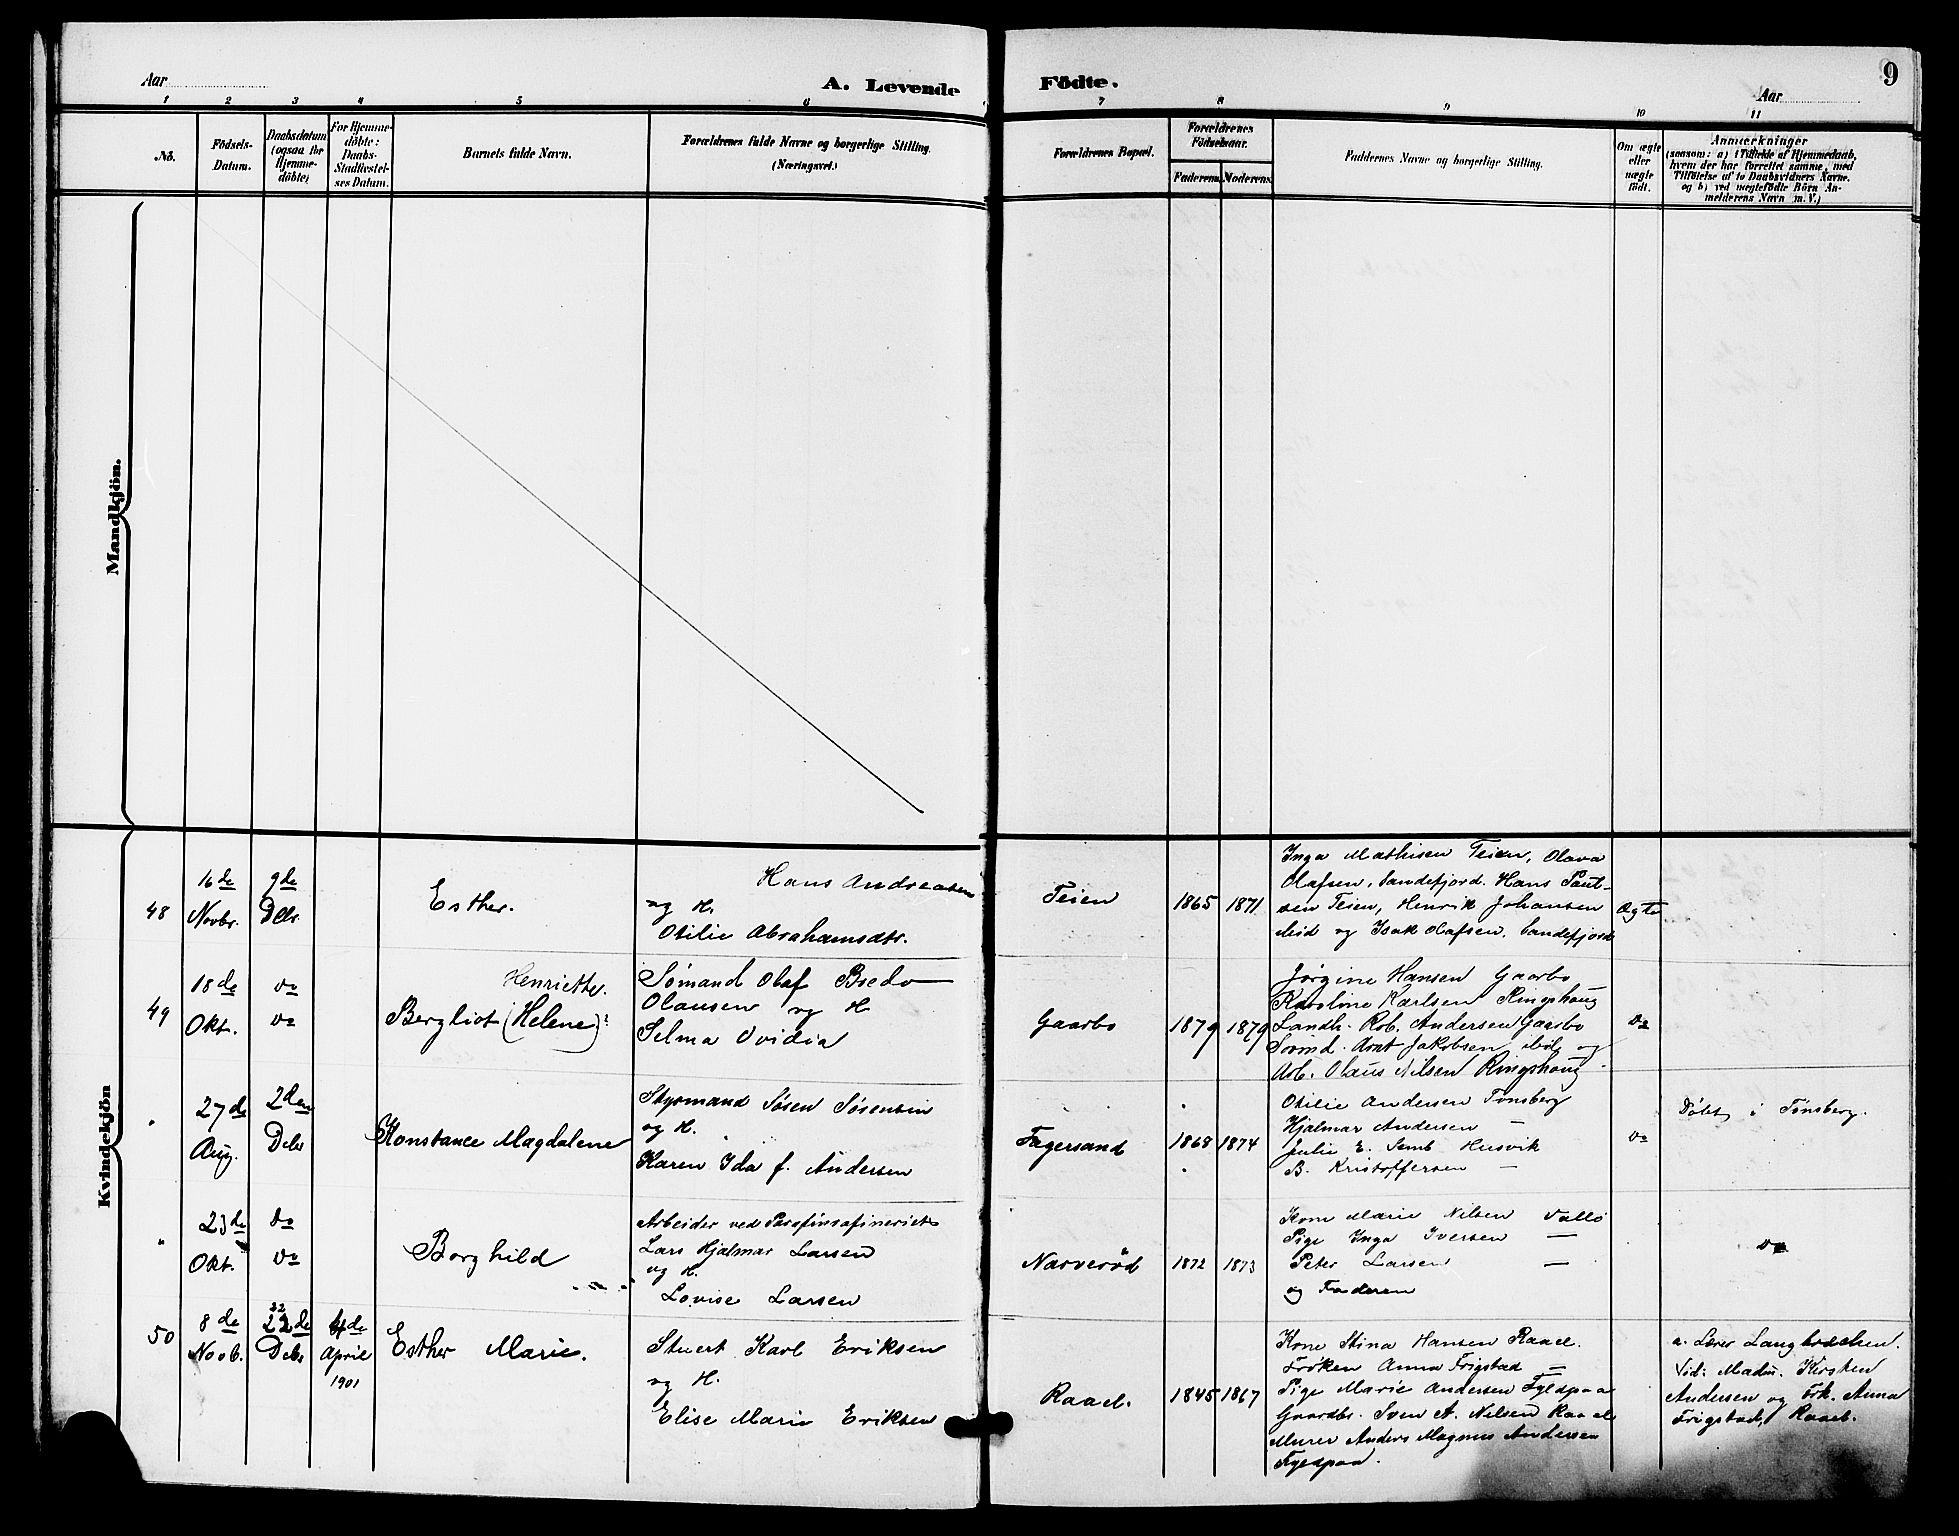 Aar
A. Levende
Födte.
Aar
9
1 2 3 4 5 6
7 8 9 10 11
No.
Födsels-
Datum.
Daabsdatum
(ogsaa for
Hjemme-
döbte)
For Hjemme-
döbte:
Daabs-
Stadfæstel-
ses Datum.
Barnets fulde Navn.
Forældrenes fulde Navne og borgerlige Stilling.
(Næringsvei.)
Forældrenes Bopæl.
Forældrenes
Födselsaar.
Faderens. Moderens.
Faddernes Navne og borgerlige Stilling.
Om ægte
eller
uægte
födt.
Anmærkninger
(saasom: a) i Tilfælde af Hjemmedaab,
hvem der har forrettet samme, med
Tilföielse af to Daabsvidners Navne.
og b) ved uægtefödte Börn An-
melderens Navn m. V.)
Mandkjön.
Kvindekjön
48
16de
Novbr.
9de
Decbr
Esther.
Hans Andreasen
og H.
Otilie Abrahamsdtr.
Teien
1865
1871
Inga Mathisen Teien, Olava
Olafsen, Sandefjord. Hans Paul-
sen Teien, Henrik Johansen
ibid og Isak Olafsen, Sandefjord
Ægte
49
18de
Okt.
do
do
Henriette.
Bergliot (Helene)?
Sømand Olaf Bredo
Olausen og H
Selma Ovidia
Gaarbo
1879
1879
Jørgine Hansen Gaarbo
Karoline Karlsen Ringshaug
Landh. Rob. Andersen Gaarbo
Sømd. Arnt Jakobsen ibid, og
Arb. Olaus Nilsen Ringshaug.
do
"
27de
Aug.
2den
Decbr
Konstance Magdalene
Styrmand Søren Sørensen
og H.
Karen Ida f. Andersen
Fagersand
1868
1874
Otilie Andersen Tønsberg
Hjalmar Andersen —
Julie E. Semb Husvik
B. Kristoffersen —
do
Døbt i Tønsberg.
"
23de
Okt.
do
do
Borghild
Arbeider ved Parafinrafineriet
Lars Hjalmar Larsen
og H.
Lovise Larsen
Narverød
1872
1873
Kone Marie Nilsen Vallø
Pige Inga Iversen —
Peter Larsen —
og Faderen
do
50
8de
Novb.
22
22de
Decbr
4de
April
1901
Esther Marie.
Stuert Karl Eriksen
og H.
Elise Marie Eriksen
Raael.
1845
1867
Kone Stina Hansen Raael.
Frøken Anna Frigstad —
Pige Marie Andersen Fyldpaa
Gaardbr. Sven A. Nilsen Raael
Murer Anders Magnus Andersen
Fyldpaa.
a. Lærer Langbrækken.
Vid: Madm. Kirsten
Andersen og Frk. Anna
Frigstad, Raael.